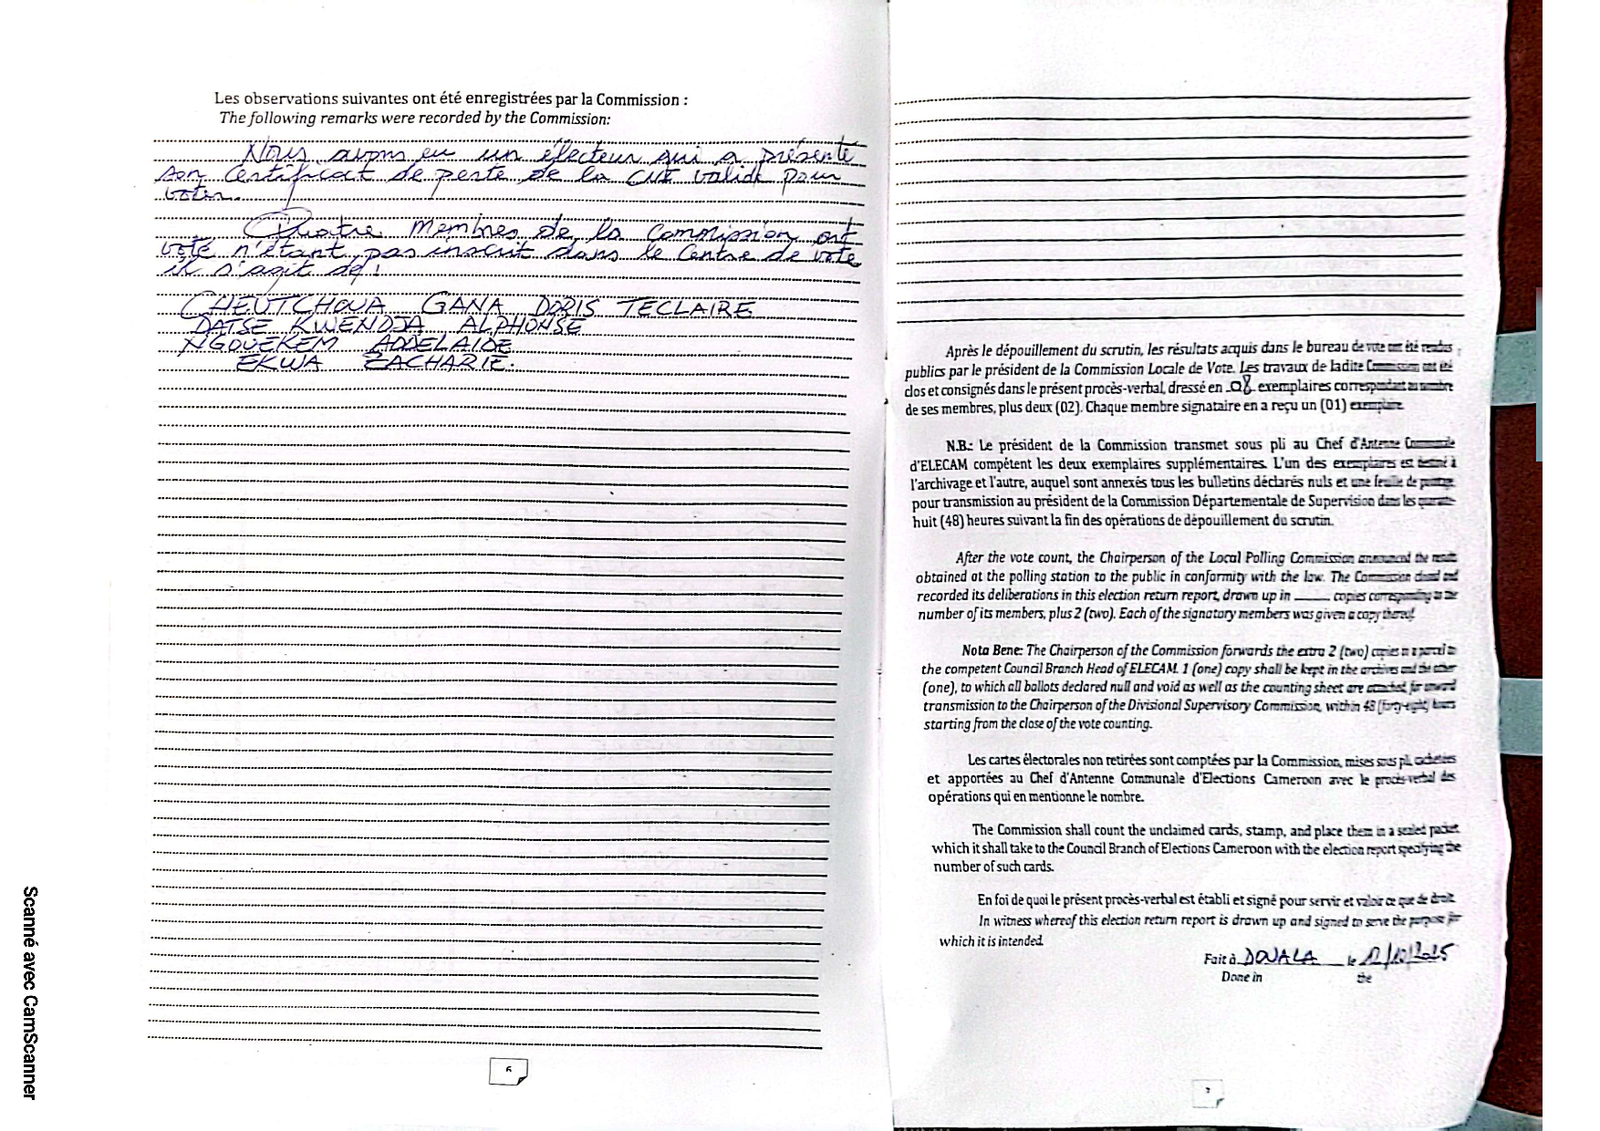 Les observations suivantes ont été enregistrées par la Commission :
The following remarks were recorded by the Commission:
Nous avons eu un électeur qui a présenté
son Certificat de perte de la CNI valide pour
voter.
Quatre membres de la Commission ont
voté n'étant pas inscrit dans le Centre de vote
il s'agit de :
CHEUTCHOUA GANA DORIS TECLAIRE
DATSE KWENDJA ALPHONSE
NGOUEKEM ADDELAIDE
EKWA ZACHARIE.
6
Après le dépouillement du scrutin, les résultats acquis dans le bureau de vote ont été rendus
publics par le président de la Commission Locale de Vote. Les travaux de ladite Commission ont été
clos et consignés dans le présent procès-verbal, dressé en 08 exemplaires correspondant au nombre
de ses membres, plus deux (02). Chaque membre signataire en a reçu un (01) exemplaire.
N.B.: Le président de la Commission transmet sous pli au Chef d'Antenne Communale
d'ELECAM compétent les deux exemplaires supplémentaires. L'un des exemplaires est destiné à
l'archivage et l'autre, auquel sont annexés tous les bulletins déclarés nuls et une feuille de pointage
pour transmission au président de la Commission Départementale de Supervision dans les quarante-
huit (48) heures suivant la fin des opérations de dépouillement du scrutin.
After the vote count, the Chairperson of the Local Polling Commission announced the results
obtained at the polling station to the public in conformity with the law. The Commission closed and
recorded its deliberations in this election return report, drawn up in ______ copies corresponding to the
number of its members, plus 2 (two). Each of the signatory members was given a copy thereof.
Nota Bene: The Chairperson of the Commission forwards the extra 2 (two) copies in a parcel to
the competent Council Branch Head of ELECAM. 1 (one) copy shall be kept in the archives and the other
(one), to which all ballots declared null and void as well as the counting sheet are attached for onward
transmission to the Chairperson of the Divisional Supervisory Commission, within 48 (forty-eight) hours
starting from the close of the vote counting.
Les cartes électorales non retirées sont comptées par la Commission, mises sous pli, cachetées
et apportées au Chef d'Antenne Communale d'Elections Cameroon avec le procès-verbal des
opérations qui en mentionne le nombre.
The Commission shall count the unclaimed cards, stamp, and place them in a sealed packet
which it shall take to the Council Branch of Elections Cameroon with the election report specifying the
number of such cards.
En foi de quoi le présent procès-verbal est établi et signé pour servir et valoir ce que de droit.
In witness whereof this election return report is drawn up and signed to serve the purpose for
which it is intended.
Fait à DOUALA le 12/10/2025
Done in the
7
Scanné avec CamScanner